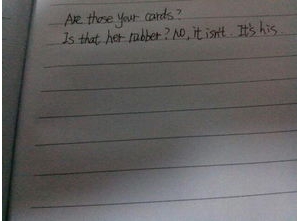 Are those your cards?
Is that her rubber? No, it isn't. It's his.